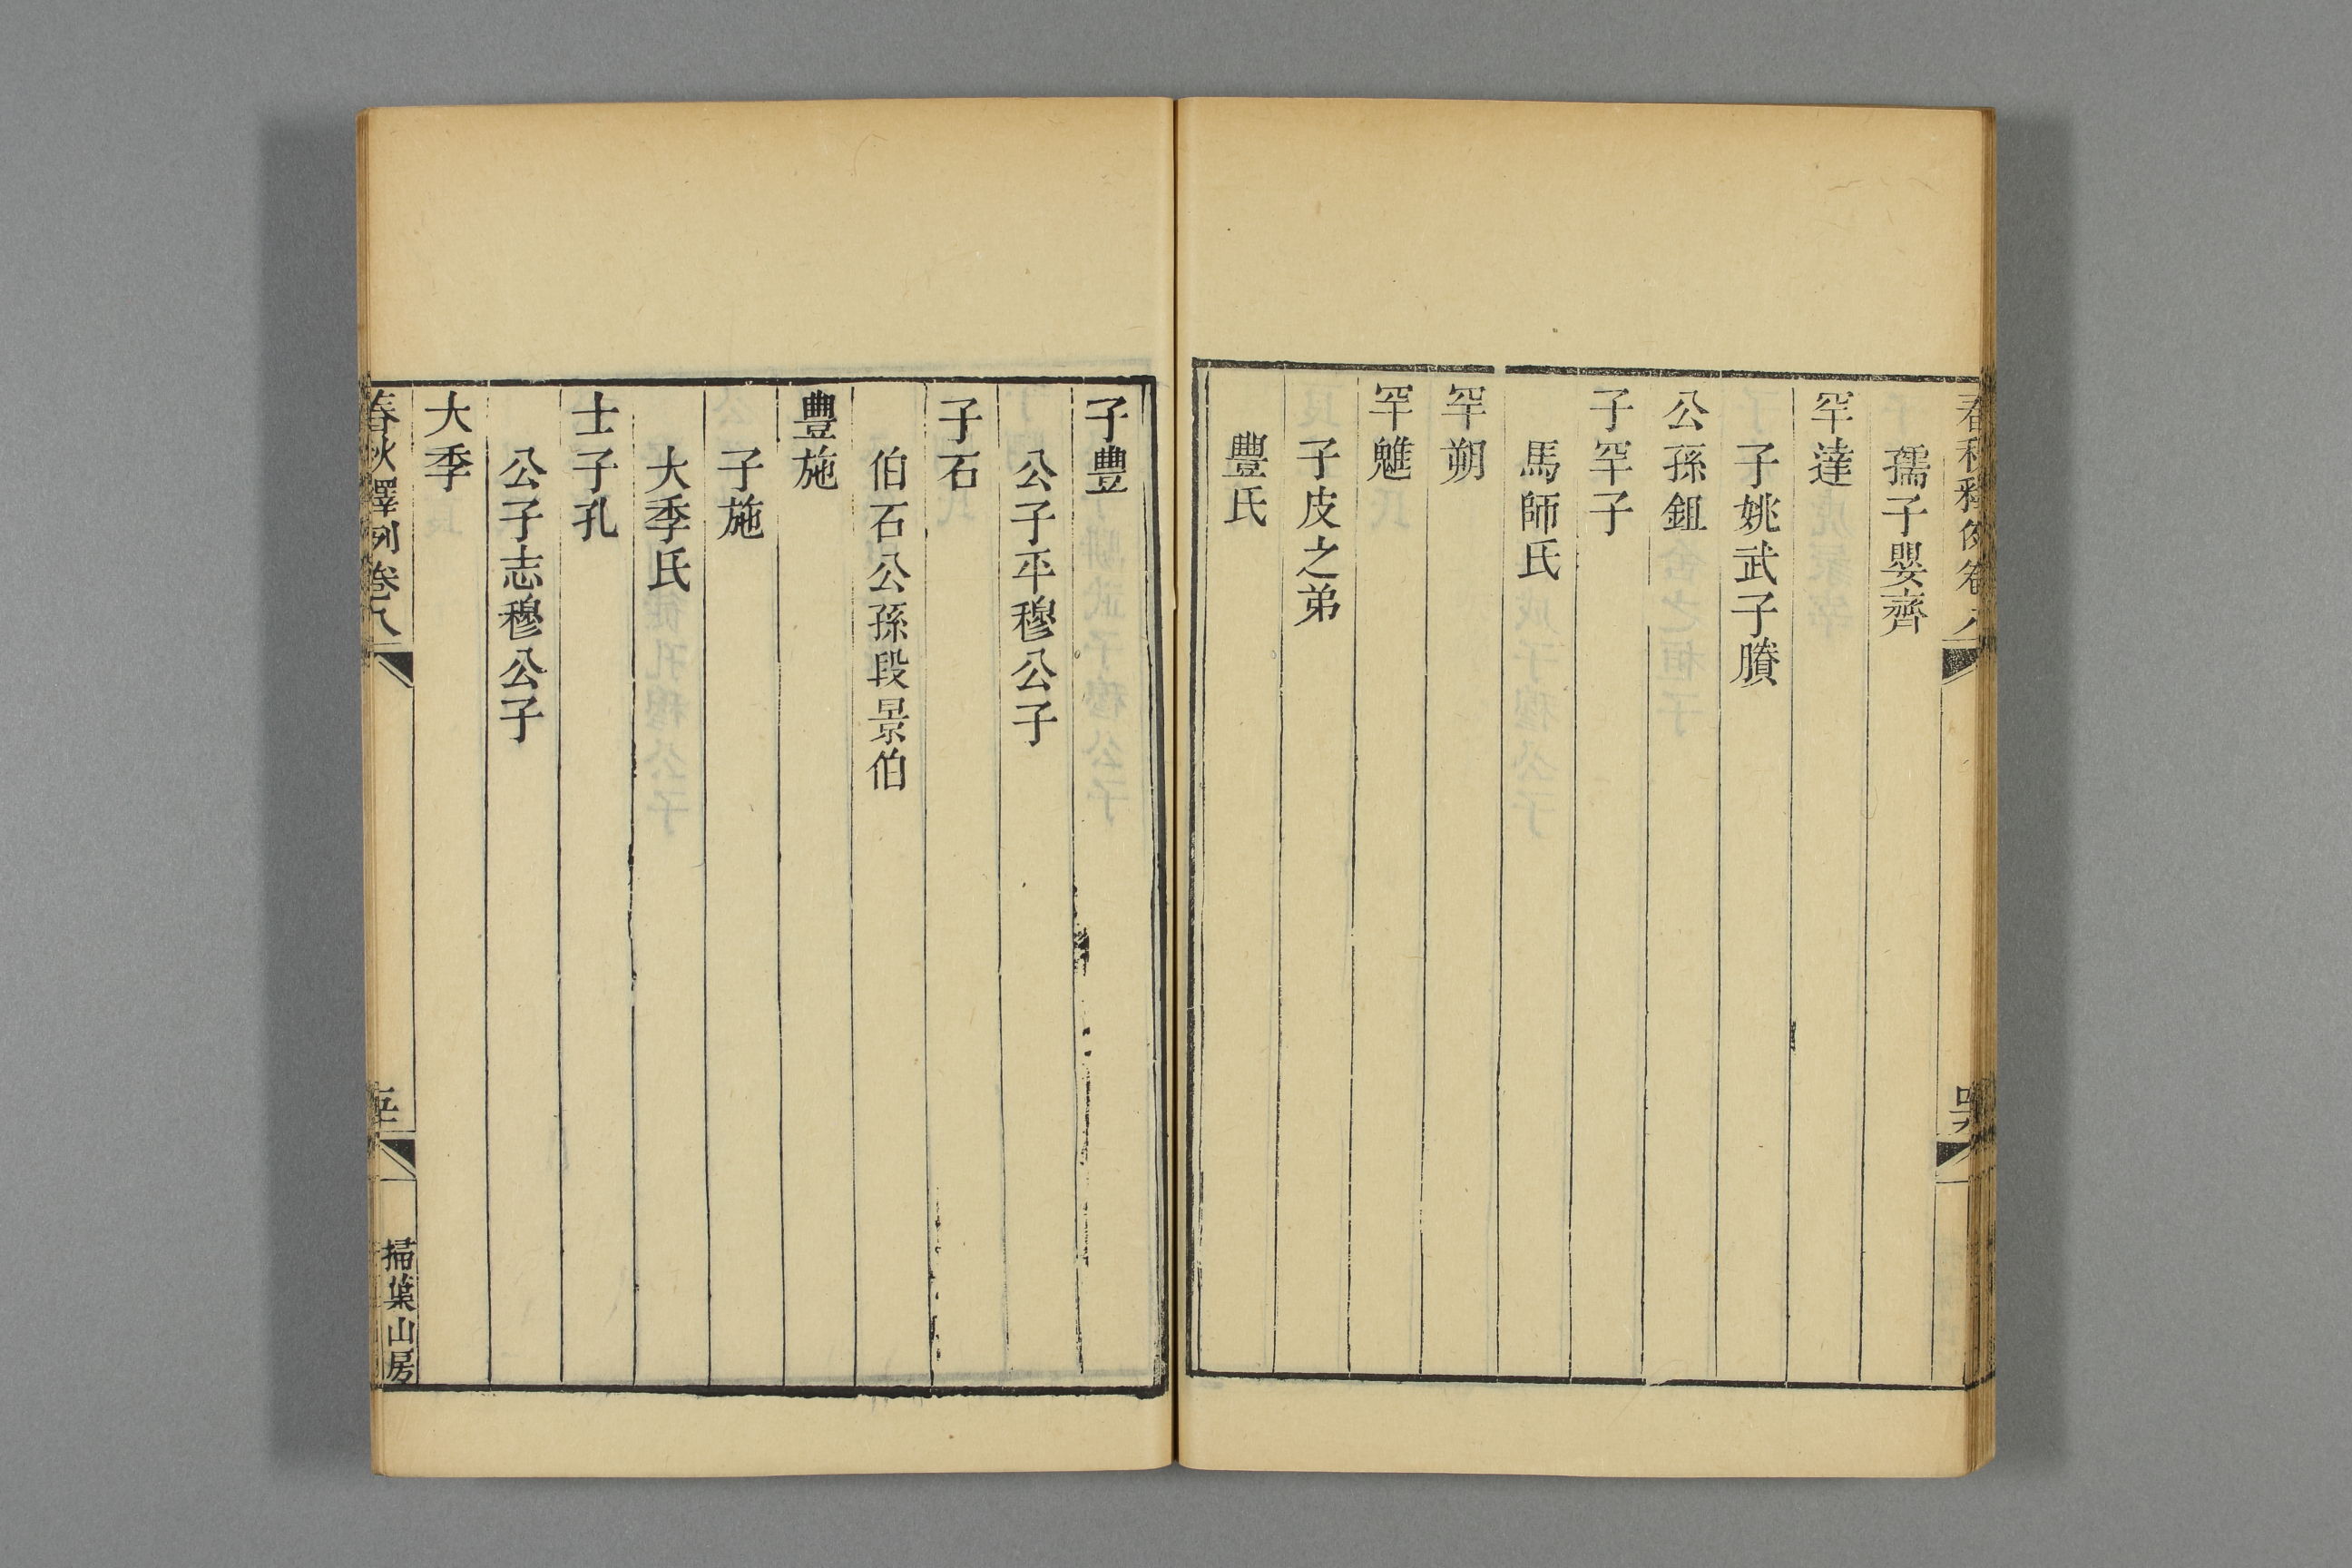 春秋釋例卷八
孺子嬰齊
罕達
子姚武子賸
公孫鉏
子罕子
馬師氏
罕朔
罕魋
子皮之弟
豐氏
子豐
公子平穆公子
子石
伯石公孫段景伯
豐施
子施
大季氏
士子孔
公子志穆公子
大季
春秋釋例卷八
掃葉山房